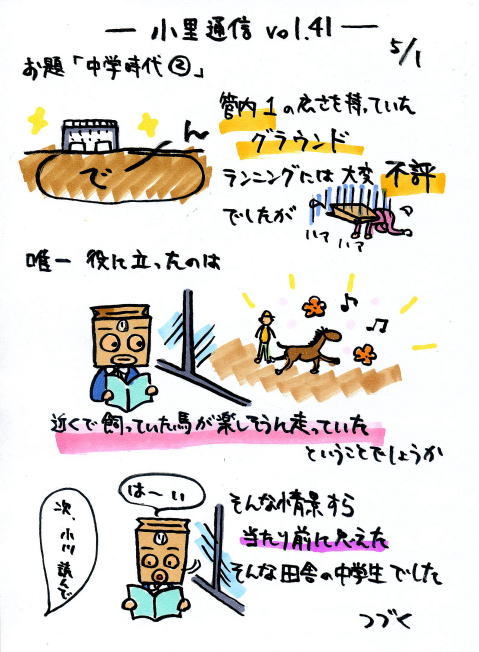 小里通信 vol.41
5/1
お題「中学時代②」
でーん
管内1の広さを持っていた
グラウンド
ランニングには大変 不評
でしたが
いて いて
唯一 役に立ったのは
近くで飼っていた馬が楽しそうに走っていた
ということでしょうか
次、小川 読んで
は〜い
そんな情景すら
当たり前に思えた
そんな田舎の中学生でした
つづく